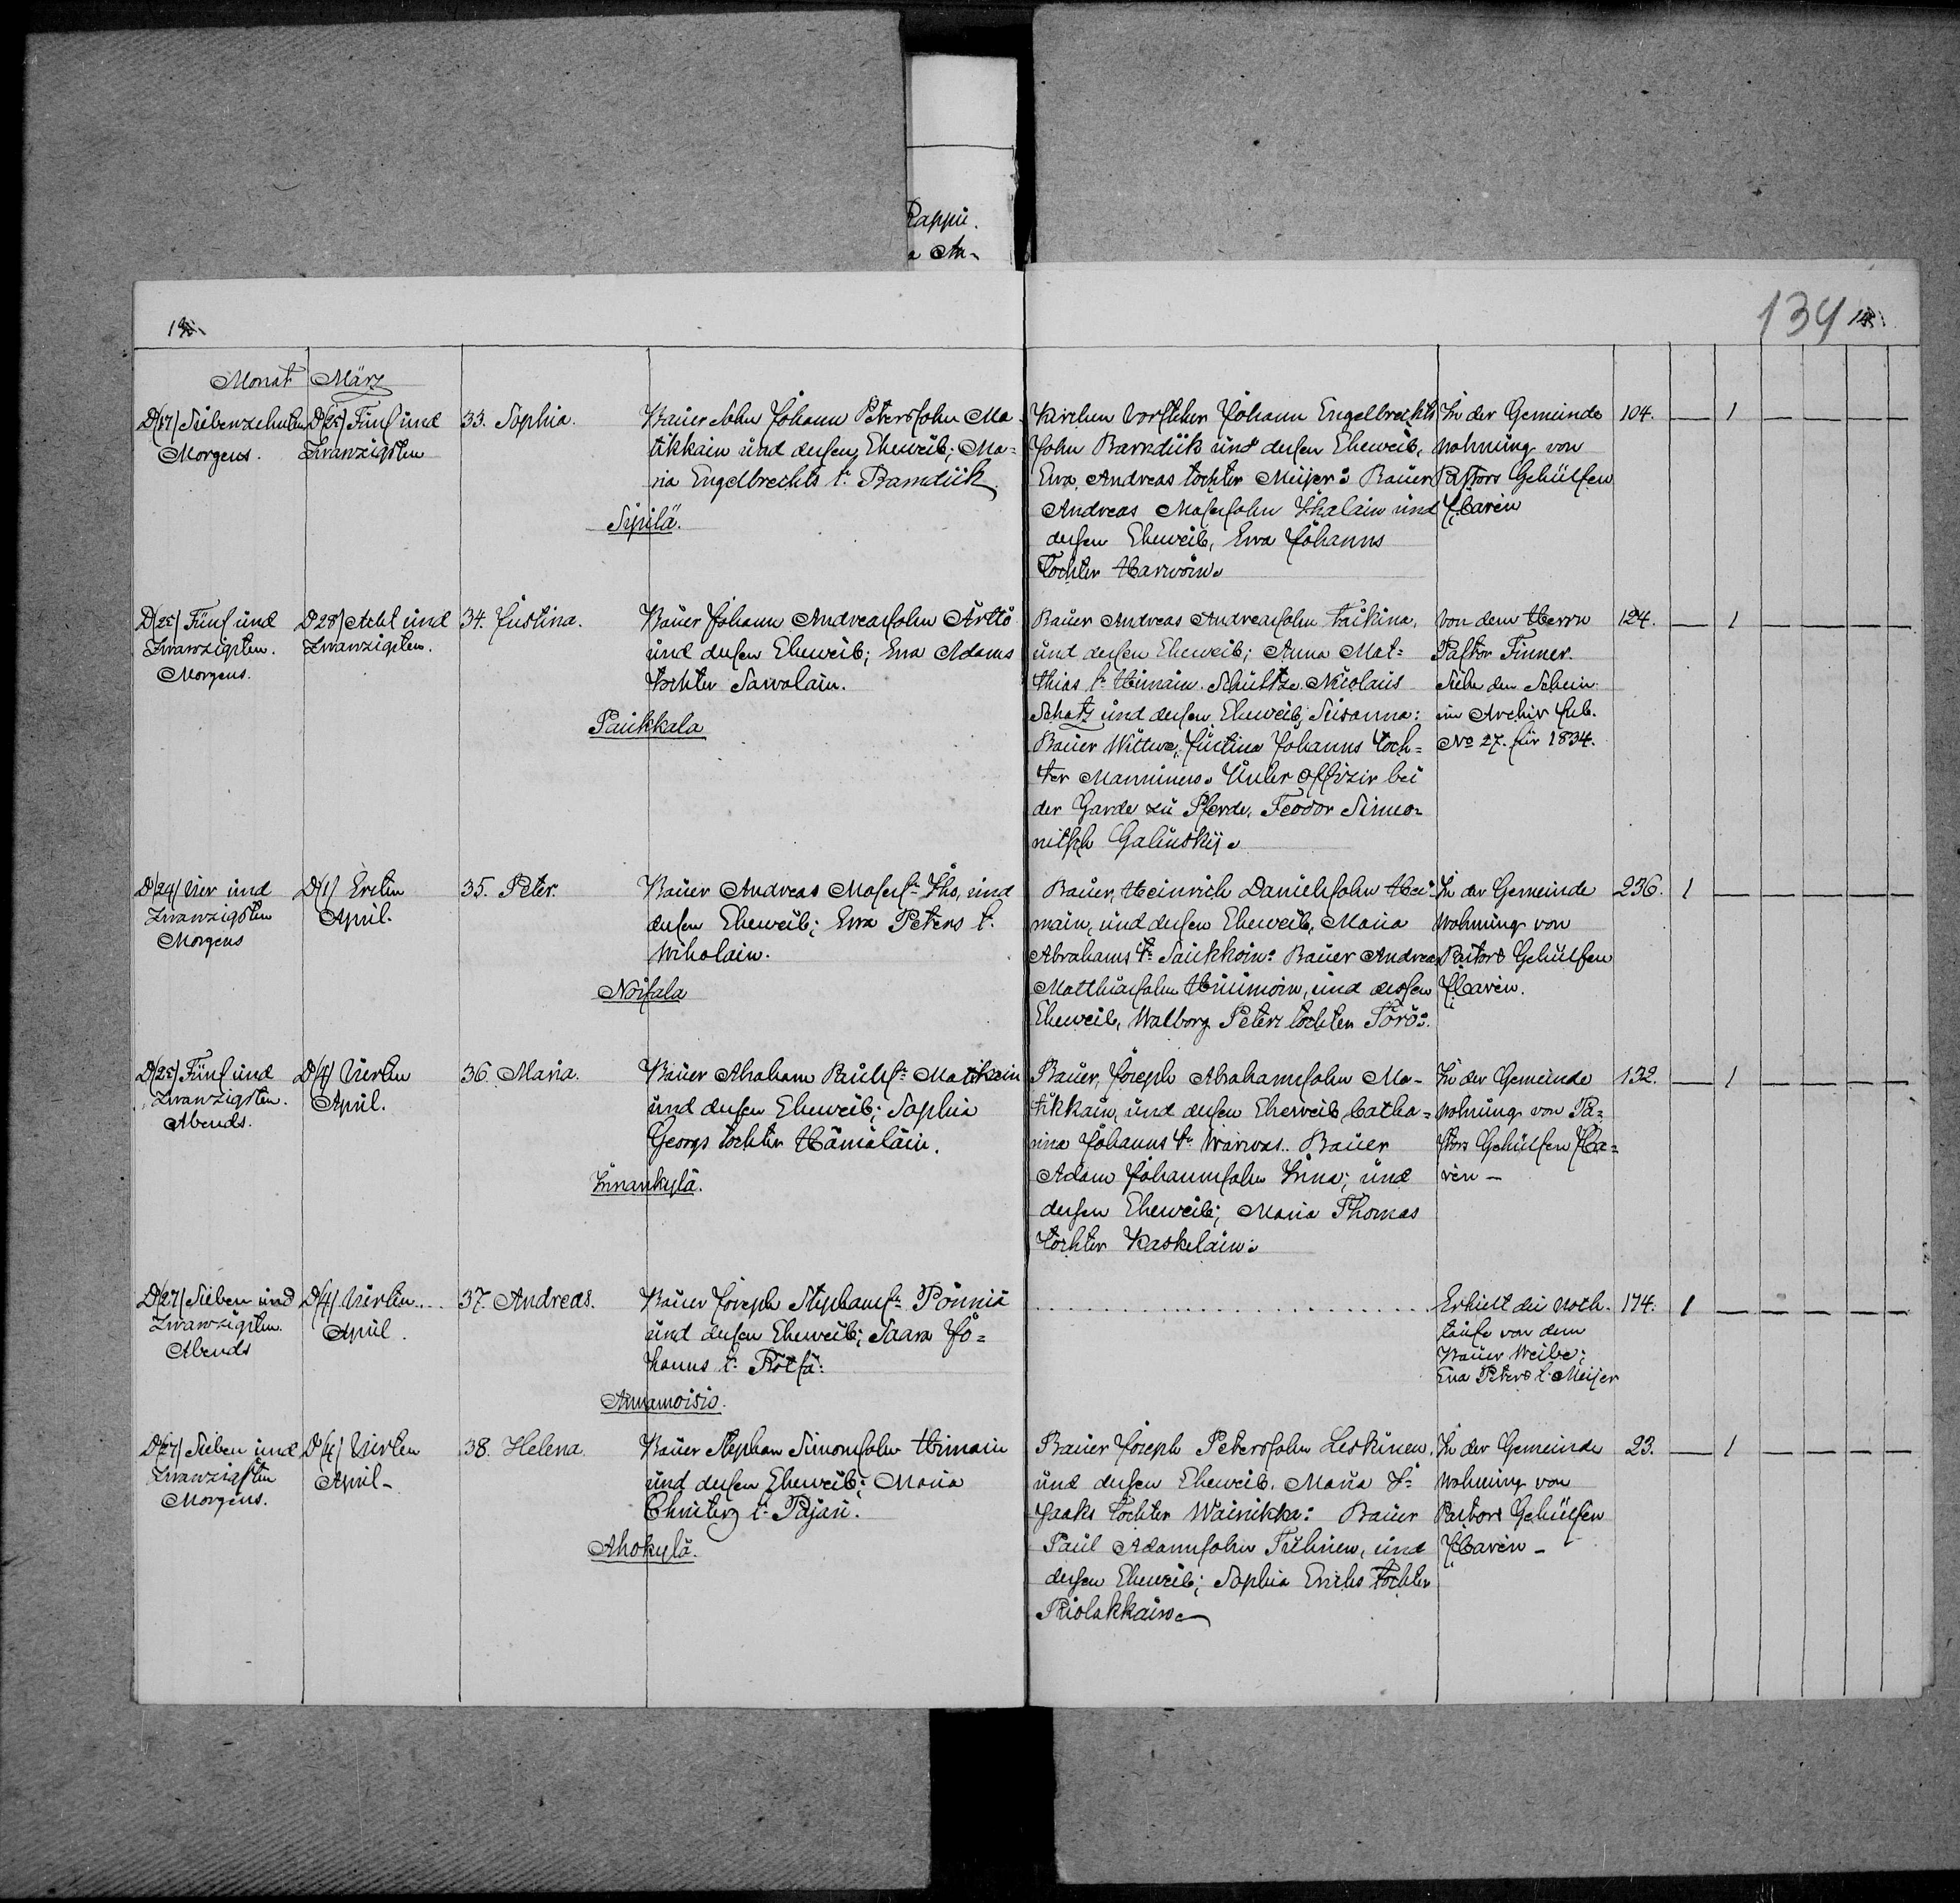 Rappu.
a An-
134
Monat März
D/17/ Siebenzehnten
Morgens.
D/25/ Fünf und
Zwanzigsten
33. Sophia.
Bauer Sohn Johann Peterssohn Ma-
tikkain und dessen Eheweib; Ma=
ria Engelbrechts t: Ramdük
Sipilä.
Kirchen Vorsteher Johann Engelbrechts
sohn Ramdük und dessen Eheweib,
Ewa, Andreas tochter Meijer: Bauer
Andreas Mosessohn Ihalain und
dessen Eheweib, Ewa Johanns
Tochter Harwoin.
In der Gemeinde
Wohnung von
Pastors Gehülfen
Havén
104. — 1 — — — —
D/25/ Fünf und
Zwanzigsten.
Morgens.
D28/ Acht und
Zwanzigsten.
34. Justina.
Bauer Johann Andreassohn Ärttö
und dessen Eheweib; Ewa Adams
tochter Sawolain.
Paukkala
Bauer Andreas Andreassohn Taikina,
und dessen Eheweib; Anna Mat=
thias t: Himäin. Schultze Nicolaus
Schatz und dessen Eheweib; Susanna:
Bauer Wittwe, Justina Johanns toch=
ter Manninen. Unter Offizir bei
der Garde zu Pferde, Feodor Simeo-
nitsch Galinskij.
Von dem Herrn
Pastor Finner.
Siehe den Schein
im Archiv sub.
No 27. für 1834.
124. — 1 — — — —
D/24/ Vier und
Zwanzigsten
Morgens
D/1/ Ersten
April.
35. Peter.
Bauer Andreas Moses s: Iho, und
dessen Eheweib; Ewa Peters t.
Wiholain.
Noisala
Bauer, Heinrich Danielssohn Hei-
main, und dessen Eheweib, Maria
Abrahams t: Saukkoin: Bauer Andreas
Matthiassohn Huimoin, und dessen
Eheweib, Walborg Peters tochter Törö:
In der Gemeinde
Wohnung von
Pastors Gehülfen
Havén.
236. 1 — — — — —
D/25/ Fünf und
Zwanzigsten.
Abends.
D/4/ Vierten
April.
36. Maria.
Bauer Abraham Pauls s: Matikain
und dessen Eheweib; Sophia
Georgs tochter Hämäläin.
Innankylä.
Bauer, Joseph Abrahamssohn Ma-
tikkain, und dessen Eheweib, Catha=
rina Johanns t: Warwas.. Bauer
Adam Johannssohn Inna; und
dessen Eheweib; Maria Thomas
tochter Kaskelain:
In der Gemeinde
Wohnung von Pa=
stors Gehülfen Ha=
vén —
132. — 1 — — — —
D/27/ Sieben und
Zwanzigsten.
Abends
D/4/ Vierten....
April.
37. Andreas.
Bauer Joseph Stephans s: Pönniä
und dessen Eheweib; Saara Jo=
hanns t: Rötsä:
Annamoisio.
Erhielt die Noth-
taufe von dem
Bauer Weibe;
Ewa Peters t. Meijer
174. 1 — — — — —
D/27/ Sieben und
Zwanzigsten
Morgens.
D/4/ Vierten
April —
38. Helena.
Bauer Stephan Simonssohn Himain
und dessen Eheweib; Maria
Christers t: Pajari.
Ahokylä.
Bauer Joseph Peterssohn Leskinen,
und dessen Eheweib. Maria
Jaaks tochter Wainikka: Bauer
Paul Adamssohn Tuhinen, und
dessen Eheweib; Sophia Erichs tochter
In der Gemeinde
Wohnung von
Pastors Gehülfen
Havén —
23. — 1 — — — —